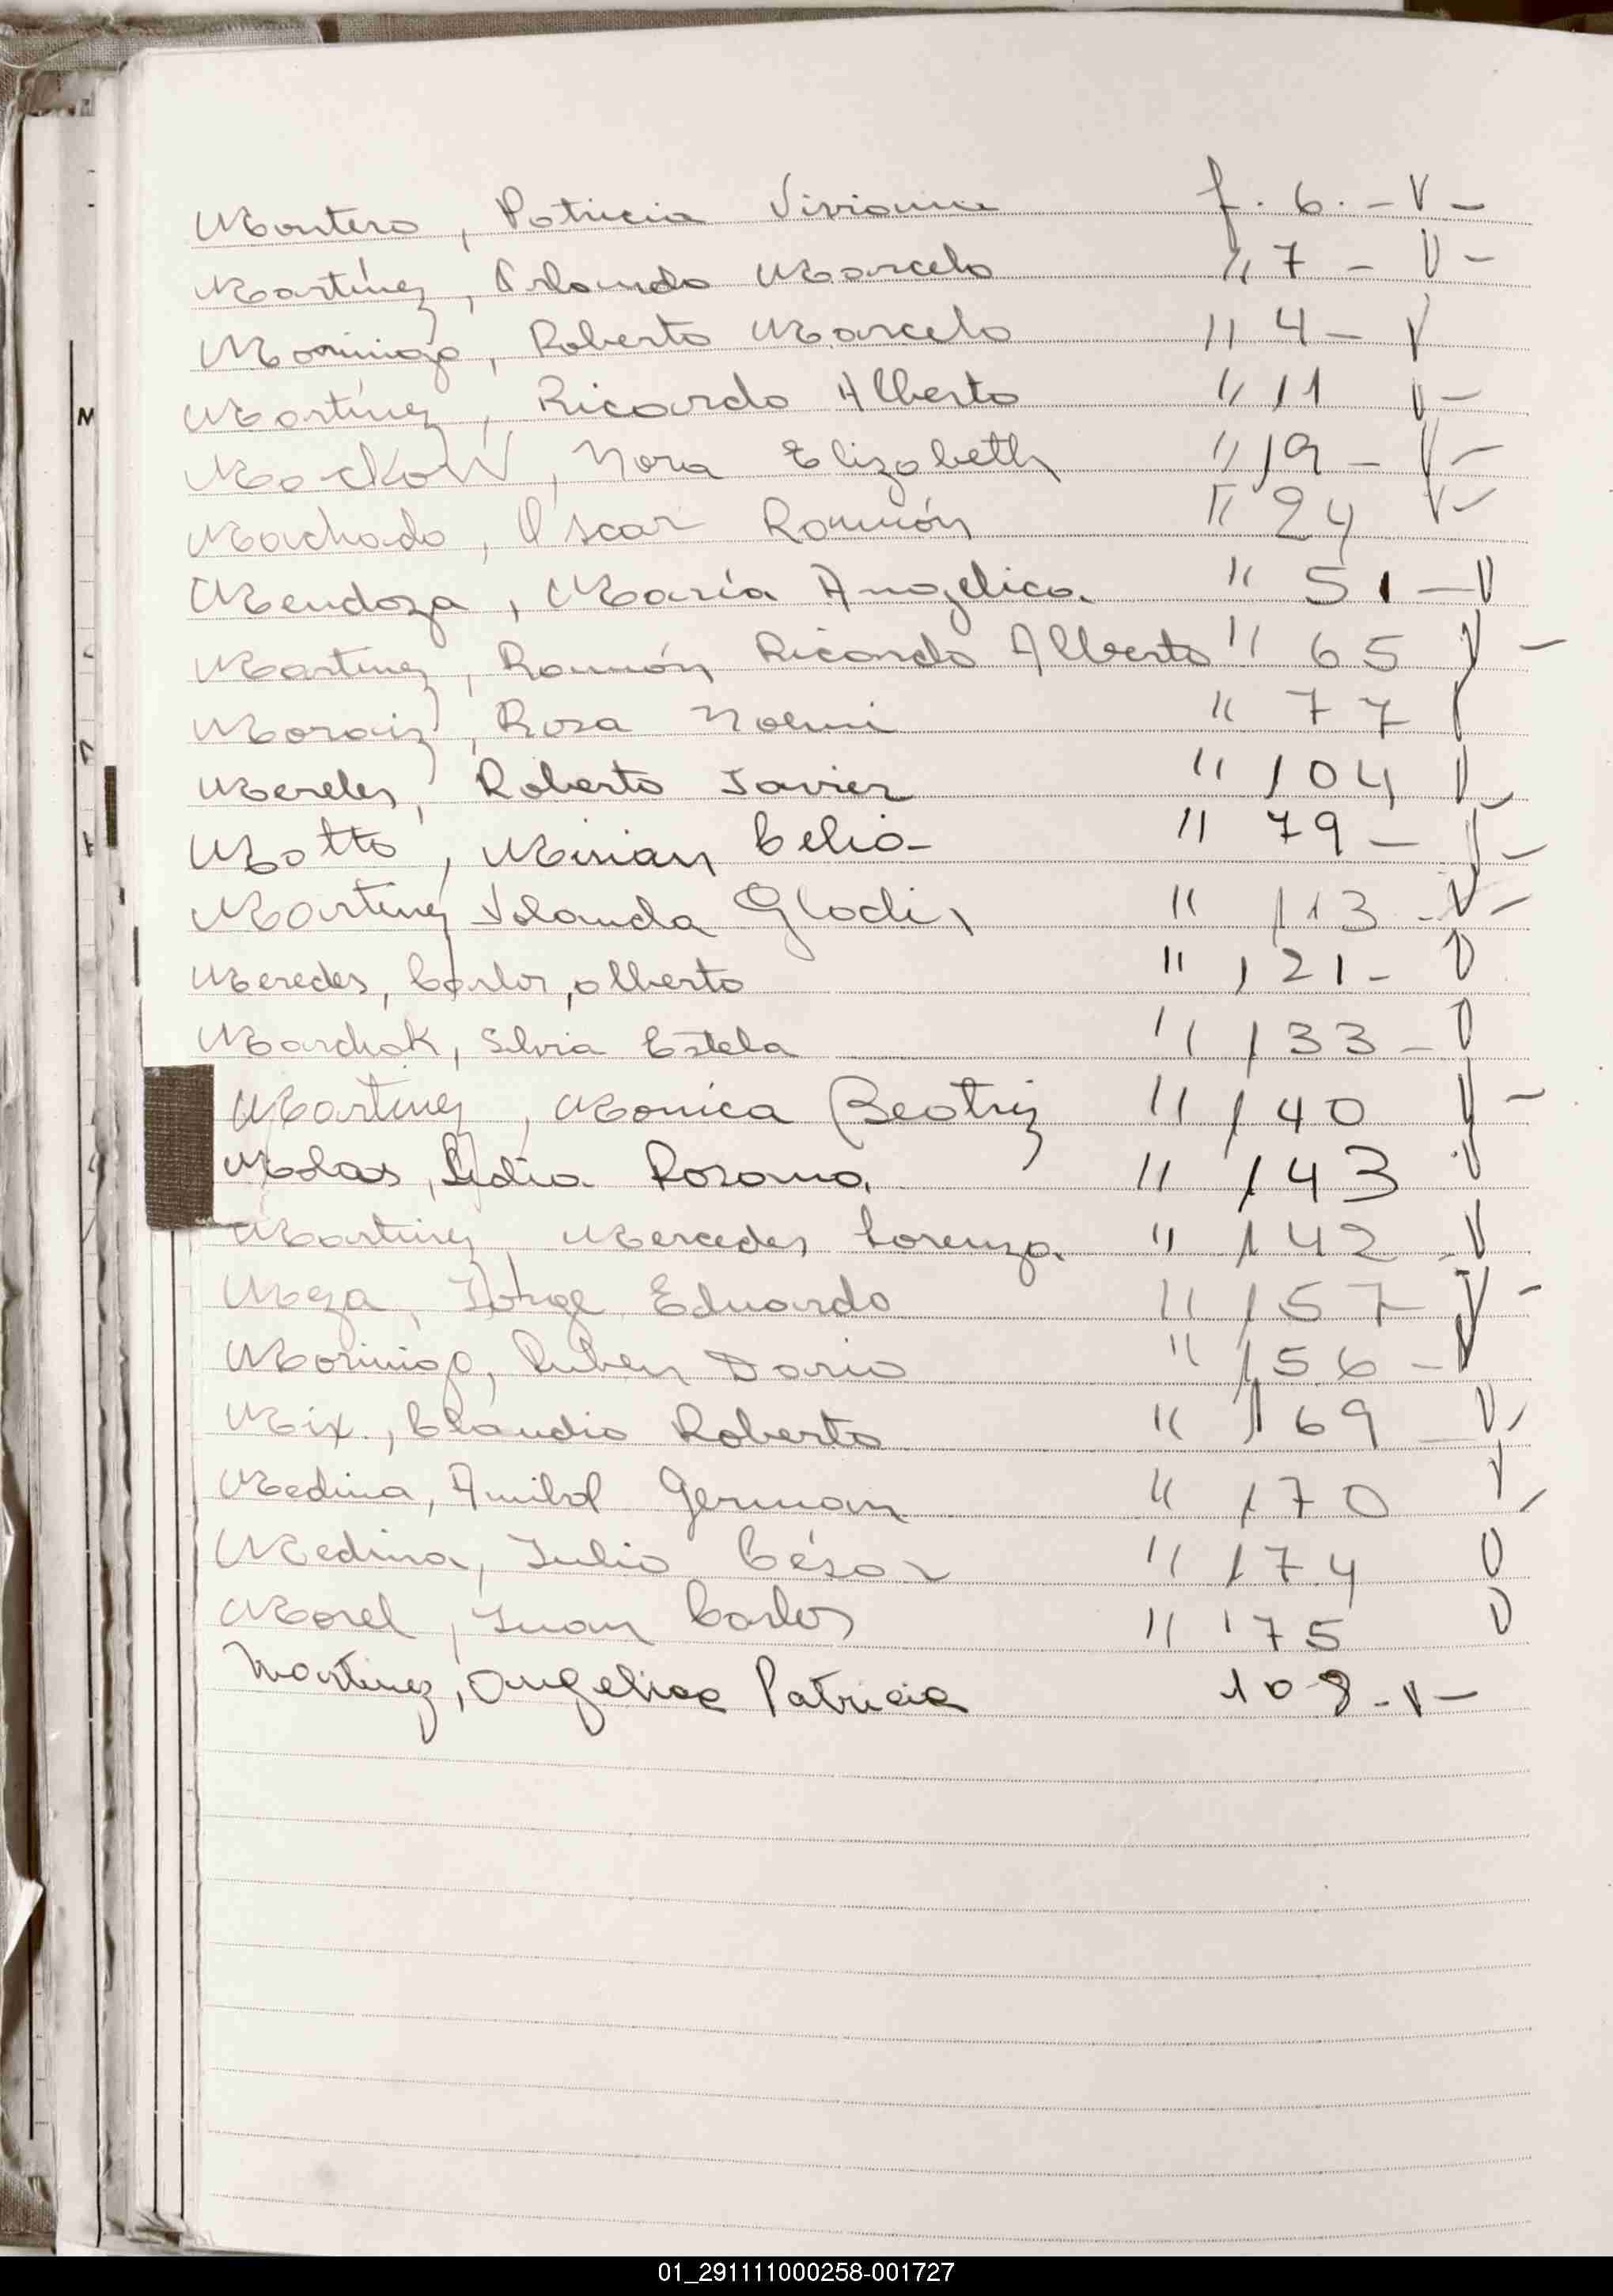 Montero, Patricia Viviana f. 6. - V -
Martínez, Orlando Marcelo " 7 - V -
Morinigo, Roberto Marcelo " 4 - V
Martínez, Ricardo Alberto " 11 V -
MackoW, Nora Elizabeth " 19 - V -
Machado, Oscar Ramón " 24 V -
Mendoza, María Angelica " 51 - V
Martinez, Ramón Ricardo Alberto " 65 V -
Moraiz, Rosa Noemi " 77 V
Mereles, Roberto Javier " 104 V -
Motto, Mirian Celia - " 79 - V -
Martinez Yolanda Gladis " 113 - V -
Meredes, Carlos, alberto " 121 - V
Marchak, Silvia Estela " 133 - V
Martinez, Monica Beatriz " 140 V -
Molas, Lidia Rosana. " 143 V
Martinez, Mercedes Lorenza " 142 - V
Meza, Jorge Eduardo " 157 V -
Morinigo, Ruben Dario " 156 - V
Mix., Claudio Roberto " 169 - V -
Medina, Anibal German " 170 V -
Medina, Julio César " 174 V
Morel, Juan Carlos " 175 V
Martinez, Angelica Patricia 108 - V -
M
01_291111000258-001727